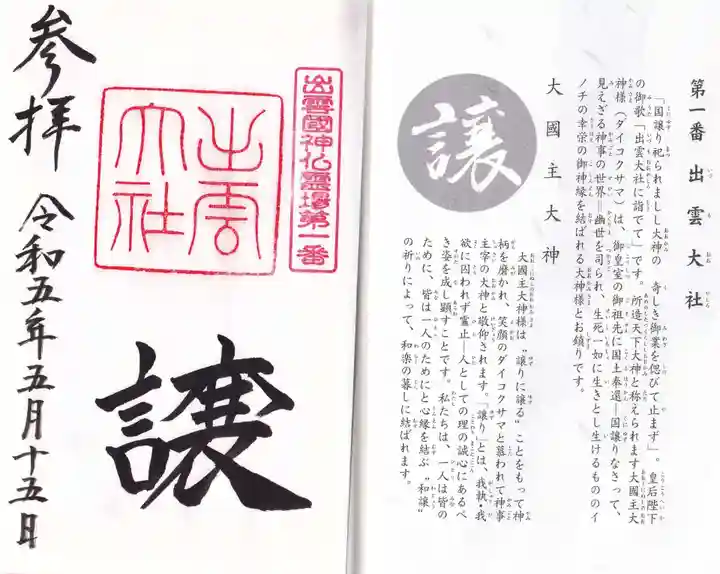 第一番出雲大社
「国譲り祀られましし大神の 奇しき御業を偲びて止まず」。皇后陛下
の御歌「出雲大社に詣でて」です。所造天下大神と称えられます大國主大
神様（ダイコクサマ）は、御皇室の御祖先に国土奉還―国譲りなさって、
見えざる神事の世界＝幽世を司られ、生死一如に生きとし生けるもののイ
ノチの幸栄の御神縁を結ばれる大神様とお鎮りです。
大國主大神
譲
大國主大神様は〝譲りに譲る〟ことをもって神
柄を磨かれ、笑顔のダイコクサマと慕われて神事
主宰の大神と敬仰されます。「譲り」とは、我執・我
欲に囚われず霊止―人としての理の誠心にあるべ
き姿を成し顕すことです。私たちは、一人は皆の
ために、皆は一人のためにと心縁を結ぶ〝和譲〟
の祈りによって、和楽の暮しに結ばれます。
出雲國神仏霊場第一番
出雲
大社
譲
参拝 令和五年五月十五日